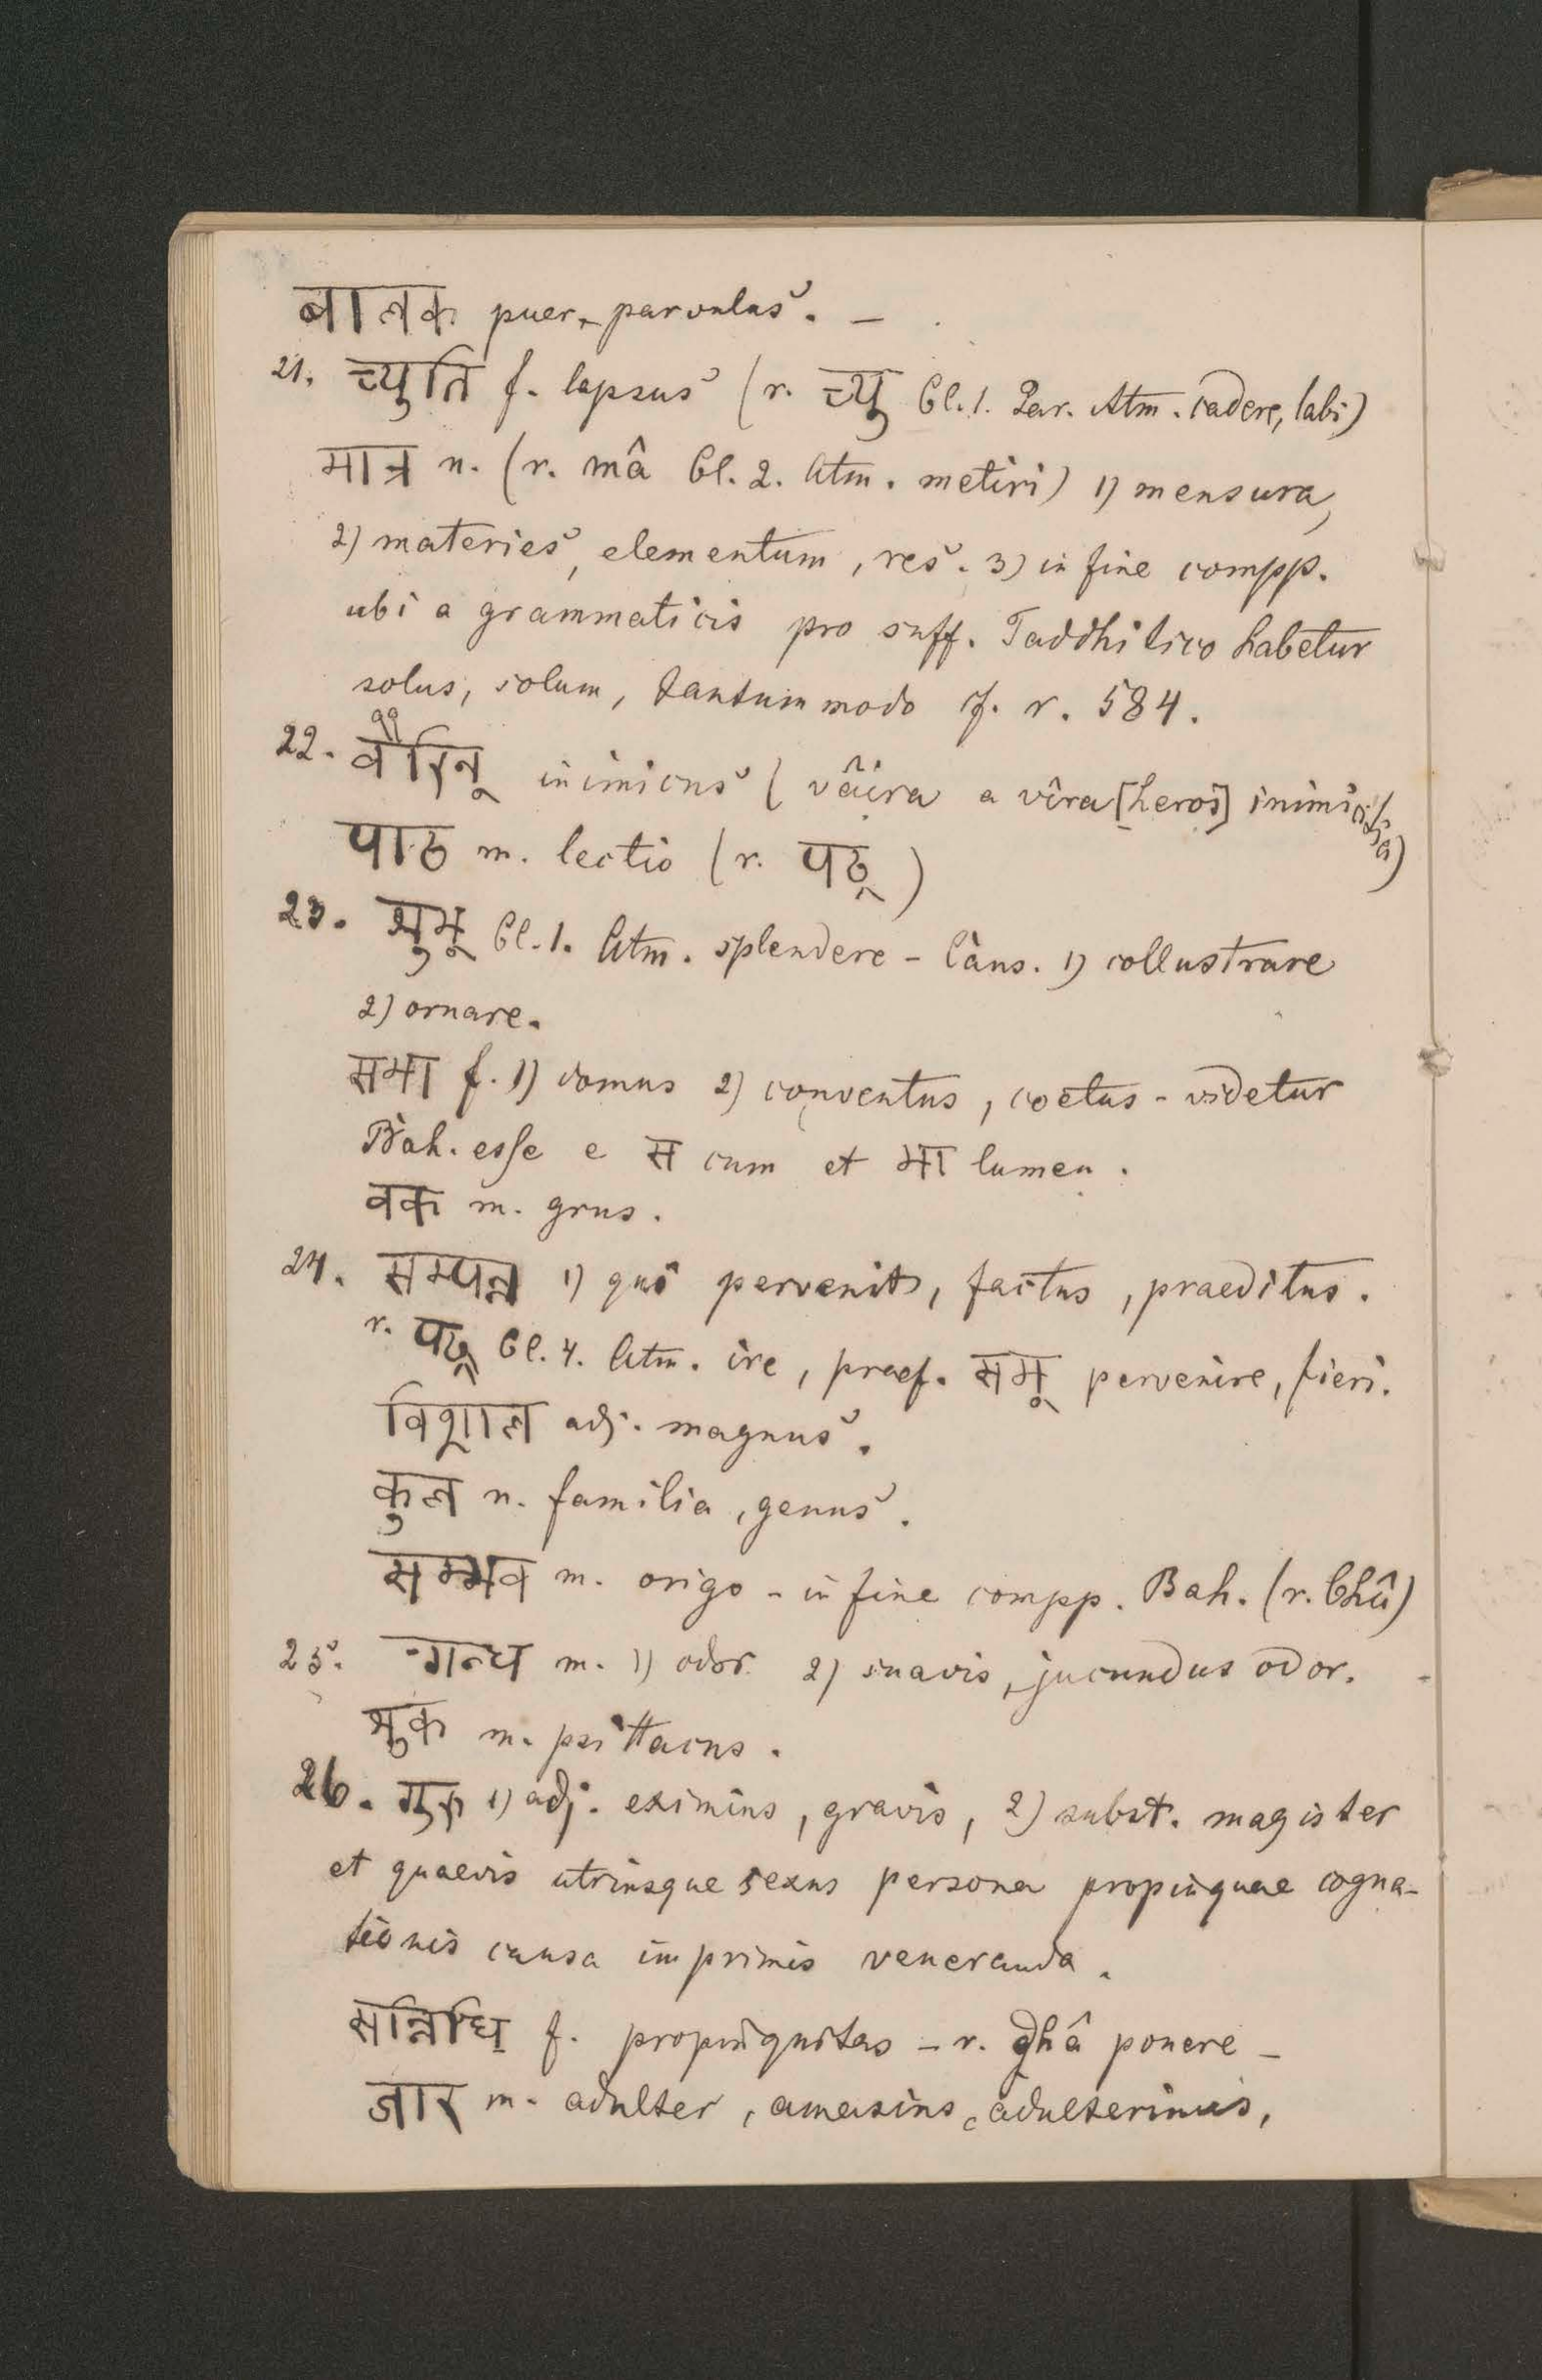 बालक puer, parvulus. –
21. च्युति f. lapsus (r. च्यु Cl. 1. Par. Atm. cadere, labi)
मात्र n. (r. mâ Cl. 2. Atm. metiri) 1) mensura,
2) materies, elementum, res. 3) in fine compp.
ubi a grammaticis pro suff. Taddhitico habetur
solus, solum, tantummodo cf. r. 584.
22. वैरिन् inimicus (vâira a vîra [heros] inimicitia)
पाठ m. lectio (r. पठ्)
23. शुभ् Cl. 1. Atm. splendere – Caus. 1) collustrare
2) ornare.
सभा f. 1) domus 2) conventus, coetus – videtur
Bah. esse e स cum et भा lumen.
वक m. grus.
24. सम्पन्न 1) qui pervenit, factus, praeditus.
r. पद् Cl. 4. Atm. ire, praef. सम् pervenire, fieri.
विशाल adj. magnus.
कुल n. familia, genus.
सम्भव m. origo – in fine compp. Bah. (r. bhû)
25. गन्ध m. 1) odor 2) suavis, jucundus odor.
शुक m. psittacus.
26. गुरु 1) adj. eximius, gravis, 2) subst. magister
et quaevis utriusque sexus persona propinquae cogna-
tionis causa imprimis veneranda.
सन्निधि f. propinquitas – r. dhâ ponere –
जार m. adulter, amasius, adulterinus,